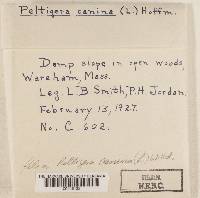 Peltigera canina (L.) Hoffm.
Damp slope in open woods,
Wareham, Mass.
Leg. L B Smith, P.H. Jordan.
February 13, 1927.
No. C 602.
Peltigera canina (L) Willd.